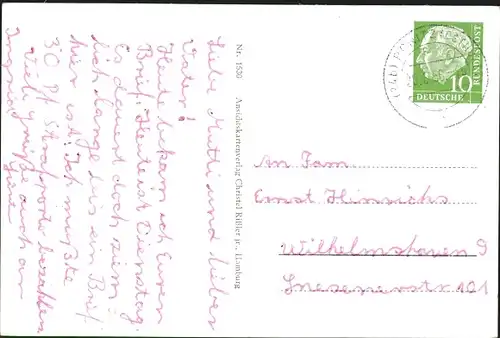 Liebe Mutti und lieber
Vater!
Heute bekam ich Euren
Brief. Heute ist Dienstag.
Es dauert doch ziem-
lich lange bis ein Brief
hier ist. Ich mußte
30 Pf Strafporto bezahlen.
Viele Grüße auch an
Nr. 1630 Ansichtskartenverlag Christel Rißler jr. Hamburg
DEUTSCHE
BUNDESPOST
10
An Fam
Ernst Hinrichs
Wilhelmshaven 9
101